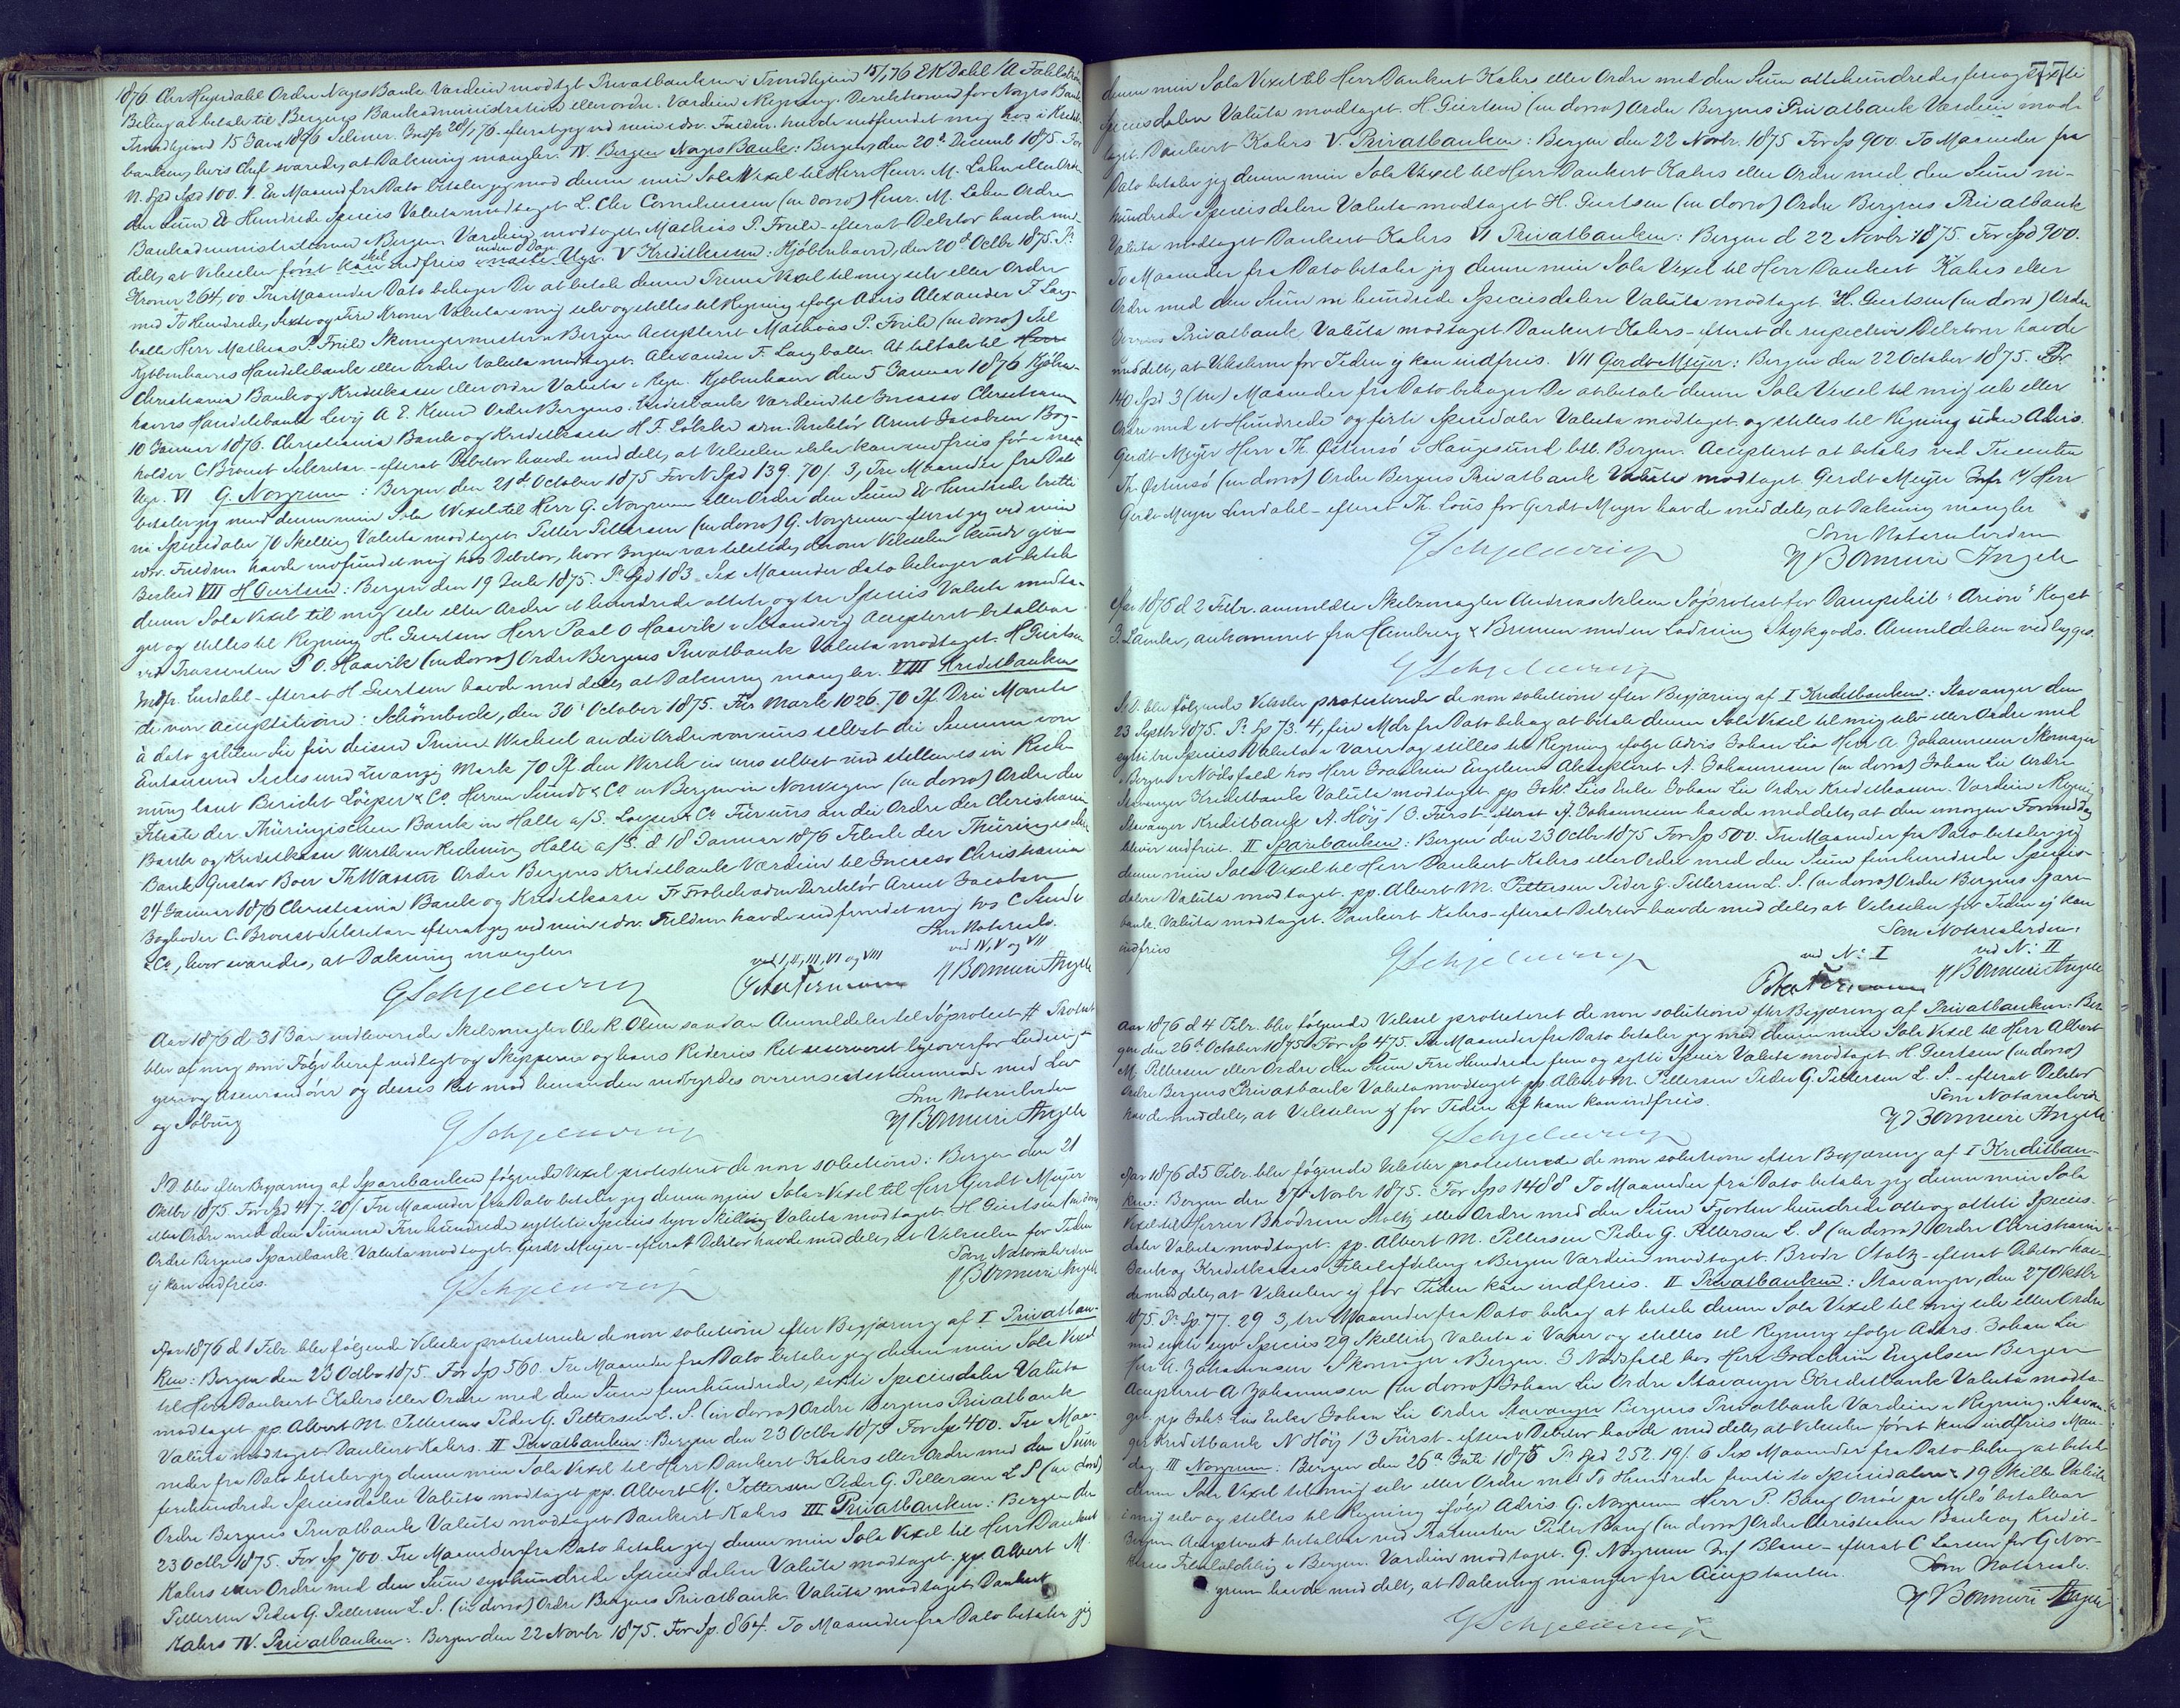 1876 Chr Heyerdahl Ordre Norges Bank. Værdien modtaget Privatbanken i Trondhjem 15/1 76 E K Dahl /A Fahlstrøm
Behag at betale til Bergens Bankadministration eller ordre. Værdien i Regning. Direktionen for Norges Bank
Trondhjem 15 Jan 1876 Selmer. Indfr 20/1 76 - efterat jeg ved min edsv. Fuldm. havde indfundet mig hos i Kredit-
banken, hvis Chef svarede, at Dækning mangler. IV. Bergen Norges Bank: Bergen, den 20de Decemb 1875. For
N. Spd Spd 100. 1. En Maaned fra Dato betaler jeg mod denne min Sola Vexel til Herr Henr. M. Lahn eller Ordre
den Sum Et Hundrede Species Valuta modtaget L. Chr Corneliussen (in dorso) Henr. M. Lahn Ordre
Bankadministrationen i Bergen Værdien modtaget Mathias P. Friele - efterat Debitor havde med-
delt, at Vexelen først skal indfries inden 8 Dage. V Kreditkassen: Kjöbenhavn, den 20de Octbr 1875. Pr
Kroner 264,00. Tre Maaneder Dato behager De at betale denne Prima Vexel til mig selv eller Ordre
med To Hundrede, Sexti og Fire Kroner Valuta i mig selv og stilles til Regning ifølge Advis Alexander F. Lang-
balle Herr Mathias P. Friele Skomagermester i Bergen Accepteret Mathias P. Friele (in dorso) Til
Kjøbenhavns Handelsbank eller Ordre Valuta modtaget. Alexander F. Langballe. At betale til
Christiania Bank og Kreditkasse eller ordre Valuta i Regn. Kjøbenhavn den 5 Januar 1876 Kjøben-
havns Handelsbank Levy A E. Ordre Bergens Kreditbank Værdien til Incasso Christiania
10 Januar 1876. Christiania Bank og Kreditkasse H. T. adm. Direktör Arent Jacobsen Bog-
holder C. Sekretær - efterat Debitor havde meddelt, at Vexelen ikke kan indfries før i næste
Uge. VI G. Norgreen: Bergen den 21de October 1875 For N Spd 139. 70/. 3, Tre Maaneder fra Dato
betaler jeg mod denne min Sola Wexel til Herr G. Norgreen eller Ordre den Sum Et Hundrede tretti
ni Speciedaler 70 Skilling Valuta modtaget. Petter Pettersen (in dorso) G. Norgreen - efterat jeg ved min
edsv. Fuldm. havde indfundet mig hos Debitor, hvor Ingen var tilstede, der om Vexelen kunde give
Besked VII H Geertsen: Bergen den 19 Juli 1875. Pr Spd 183. Sex Maaneder dato behager at betale
denne Sola Vexel til mig selv eller Ordre et hundrede otteti og tre Species Valuta modta-
get og stilles til Regning H. Geertsen Herr Paal O Haavik i Strandvig Accepteret betalbar
ved Trassenten P O. Haavik (in dorso) Ordre Bergens Privatbank Valuta modtaget. H Geertsen
Indfr. Lindahl - efterat H. Geertsen havde meddelt, at Dækning mangler. VIII Kreditbanken
de non acceptatione: Schönebeck, den 30t October 1875. Für Mark 1026. 70 Pf. Drei Monate
à dato zahlen Sie für diesen Prima Wechsel an die Ordre von uns selbst die Summe von
Eintausend Sechs und Zwanzig Mark 70 Pf. den Werth in uns selbst und stellen es in Rech-
nung laut Bericht & Co Herren Sundt & Co in Bergen in Norwegen (in dorso) Ordre der
Filiale der Thüringischen Bank in Halle a/S. & Co Für uns an die Ordre der Christiania
Bank og Kreditkasse Werth in Rechnung Halle a/S. d 18 Januar 1876 Filiale der Thüringischen
Bank Gustav Boer Th Ordre Bergens Kreditbank Værdien til Incasso Christiania
24 Januar 1876 Christiania Bank og Kreditkasse Fr adm Direktör Arent Jacobsen
Bogholder C. Sekretær efterat jeg ved min edsv. Fuldm havde indfundet mig hos C Sundt
& Co, hvor svaredes, at Dækning mangler.
Som Notarialv.
ved I, II, III, VI og VIII
ved IV, V og VII
G Schjelderup
Peter
N Bonnevie Angell
Aar 1876 d 31 Jan indleverede Skibsmægler Ole R. Olsen saadan Anmeldelse til Söprotest #. Protest
blev af mig som Følge heraf indlagt og Skipperens og hans Rederies Ret reserveret ligeoverfor Ladning-
gen og Assurandörer og desses Ret mod hinanden indbyrdes overensstemmende med Lov
og Søbrug
Som Notarialvidne
G Schjelderup
N Bonnevie Angell
S. D. blev efter Begjæring af Sparebanken følgende Vexel protesteret de non solutione: Bergen den 21
Oktbr 1875. For Spd 477. 20/. Tre Maaneder fra Dato betaler jeg denne min Sola-Vexel til Herr Gerdt Meyer
eller Ordre med den Summa Fire hundrede syttisyv Species tyve Skilling Valuta modtaget H Geertsen (in dorso)
Ordre Bergens Sparebank Valuta modtaget. Gerdt Meyer - efterat Debitor havde meddelt, at Vexelen for Tiden
ej kan indfries.
Som Notarialvidne
G Schjelderup
N Bonnevie Angell
Aar 1876 d 1 Febr. blev følgende Vexeler protesterede de non solutione efter Begjæring af I Privatban-
ken: Bergen den 23 Octbr 1875. For Sp 560. Tre Maaneder fra Dato betaler jeg denne min Sola Vexel
til Herr Dankert Kahrs eller Ordre med den Sum femhundrede, sexti Speciesdaler Valuta
modtaget pp. Albert M. Pettersen Peder G. Pettersen L. S. (in dorso) Ordre Bergens Privatbank
Valuta modtaget Dankert Kahrs. II Privatbanken: Bergen den 23 Octbr 1875 For Sp 400. Tre Maa-
neder fra Dato betaler jeg denne min Sola Vexel til Herr Dankert Kahrs eller Ordre med den Sum
firehundrede Speciesdaler Valuta modtaget pp. Albert M. Pettersen Peder G. Pettersen L S (in dorso)
Ordre Bergens Privatbank Valuta modtaget Dankert Kahrs III Privatbanken: Bergen den
23 Octbr 1875. For Sp 700. Tre Maaneder fra Dato betaler jeg denne min Sola Vexel til Herr Dankert
Kahrs eller Ordre med den Sum syvhundrede Speciesdaler Valuta modtaget. pp Albert M.
Pettersen Peder G. Pettersen L. S. (in dorso) Ordre Bergens Privatbank. Valuta modtaget. Dankert
Kahrs IV. Privatbanken: Bergen den 22 Novbr 1875. For Sp. 864. To Maaneder fra Dato betaler jeg
77
denne min Sola Vexel til Herr Dankert Kahrs eller Ordre med den Sum ottehundrede, fire og sexti
Speciesdaler Valuta modtaget. H. Geertsen (in dorso) Ordre Bergens Privatbank Værdien mod-
taget. Dankert Kahrs V. Privatbanken: Bergen den 22 Novbr. 1875 For Sp 900. To Maaneder fra
Dato betaler jeg denne min Sola Vexel til Herr Dankert Kahrs eller Ordre med den Sum ni-
hundrede Speciesdaler Valuta modtaget H. Geertsen (in dorso) Ordre Bergens Privatbank
Valuta modtaget Dankert Kahrs VI Privatbanken: Bergen d 22 Novbr 1875. For Spd 900.
To Maaneder fra Dato betaler jeg denne min Sola Vexel til Herr Dankert Kahrs eller
Ordre med den Sum ni hundrede Speciesdaler Valuta modtaget. H. Geertsen (in dorso) Ordre
Bergens Privatbank Valuta modtaget Dankert Kahrs - efterat de respective Debitorer havde
meddelt, at Vexelerne for Tiden ej kan indfries. VII Gerdt Meyer: Bergen den 22 October 1875. Pr
140 Spd 3 (tre) Maaneder fra Dato behager De at betale denne Sola Vexel til mig selv eller
Ordre med et Hundrede og firti Speciedaler Valuta modtaget og stilles til Regning uden Advis.
Gerdt Meyer Herr Th. Østensö i Haugesund btl. Bergen. Accepteret at betales ved Trassenten
Th. Østensö (in dorso) Ordre Bergens Privatbank Valuta modtaget. Gerdt Meyer Indfr Herr
Gerdt Meyer Lindahl - efterat Th. Lous for Gerdt Meyer havde meddelt, at Dækning mangler
Som Notarialvidne
G Schjelderup
N Bonnevie Angell
Aar 1876 d 2 Febr. anmeldte Skibsmægler Andreas Nielsen Söprotest for Dampskib "Orion" Kapt
ankommet fra Hamburg & Bremen med en Ladning Stykgods. Anmeldelsen vedlægges.
G Schjelderup
S. D. blev følgende Vexeler protesterede de non solutione efter Begjæring af I Kreditbanken: Stavanger den
23 Septbr 1875. Pr Sp 73. 4, fire Mdr fra Dato behag at betale denne Sola Vexel til mig selv eller Ordre med
sytti tre Species Valuta i Varer og stilles til Regning ifølge Advis Johan Lie Herr A. Johannesen Skomager
Bergen i Nödsfald hos Herr Joachim Engelsen Accepteret A. Johannesen (in dorso) Johan Lie Ordre
Stavanger Kreditbank Valuta modtaget pp Joh. Lies Enke Johan Lie Ordre Kreditkassen. Værdien i Regning
Stavanger Kreditbank N. Höy / O. Fürst. efterat A. Johannesen havde meddelt, at den imorgen Formiddag
bliver indfriet. II Sparebanken: Bergen den 23 Octbr 1875 For Sp 500. Tre Maaneder fra Dato betaler jeg
denne min Sola Vexel til Herr Dankert Kahrs eller Ordre med den Sum femhundrede Species-
daler Valuta modtaget. pp. Albert M. Pettersen Peder G. Pettersen L. S. (in dorso) Ordre Bergens Spare-
bank. Valuta modtaget. Dankert Kahrs - efterat Debitor havde meddelt, at Vexelen for Tiden ej kan
indfries
Som Notarialvidne:
ved No I
ved No: II
G Schjelderup
Peter
N Bonnevie Angell
Aar 1876 d 4 Febr. blev følgende Vexel protesteret de non solutione efter Begjæring af Privatbanken: Ber-
gen den 26de October 1875. For Sp 475. Tre Maaneder fra Dato betaler jeg mod denne min Sola Vexel til Herr Albert
M. Pettersen eller Ordre den Sum Fire Hundrede fem og sytti Species Valuta modtaget. H. Geertsen (in dorso)
Ordre Bergens Privatbank Valuta modtaget pp. Albert M. Pettersen Peder G. Pettersen L. S. - efterat Debitor
havde meddelt, at Vexelen ej for Tiden af ham kan indfries.
Som Notarialvidne
G Schjelderup
N Bonnevie Angell
Aar 1876 d 5 Febr. blev følgende Vexeler protesterede de non solutione efter Begjæring af I Kreditban-
ken: Bergen den 27de Novbr 1875. For Spd 1488 To Maaneder fra Dato betaler jeg denne min Sola
Vexel til Herrer Brödrene Stoltz eller Ordre med den Sum Fjorten hundrede otte og otteti Species-
daler Valuta modtaget. pp. Albert M. Pettersen Peder G. Pettersen L. S (in dorso) Ordre Christiania
Bank og Kreditkasses Filialafdeling i Bergen Værdien modtaget. Brödr Stoltz - efterat Debitor hav-
de meddelt, at Vexelen ej for Tiden kan indfries. II Privatbanken: Stavanger, den 27 Oktbr
1875. Pr Sp. 77. 29 3, tre Maaneder fra Dato behag at betale denne Sola Vexel til mig selv eller Ordre
med sytti syv Species 29 Skilling Valuta i Varer og stilles til Regning ifølge Advis. Johan Lie
Herr A. Johannesen Skomager i Bergen. I Nödsfald hos Herr Joachim Engelsen Bergen
Accepteret A Johannesen (in dorso) Johan Lie Ordre Stavanger Kreditbank Valuta modta-
get pp Johs Lies Enke Johan Lie Ordre Bergens Privatbank Værdien i Regning. Stavan-
ger Kreditbank N Höy / O Fürst - efterat Debitor havde meddelt, at Vexelen først kan indfries Man-
dag III Norgreen: Bergen den 26de Juli 1875 Pr Spd 252. 19/. 6 Sex Maaneder fra Dato behag at betale
denne Sola Vexel til mig selv eller Ordre med To Hundrede femti to Speciedaler & 19 Skilling Valuta
i mig selv og stilles til Regning ifølge Advis G. Norgreen Herr P. Bang pr betalbar
Bergen Accepteret betalbar ved Trassenten Peder Bang (in dorso) Ordre Christiania Bank og Kredit-
kasses Filialafdeling i Bergen. Værdien modtaget. G. Norgreen Indf Blanc - efterat C Larsen for G Nor-
green havde meddelt, at Dækning mangler fra Acceptanten.
Som Notarialv.
G Schjelderup
N Bonnevie Angell